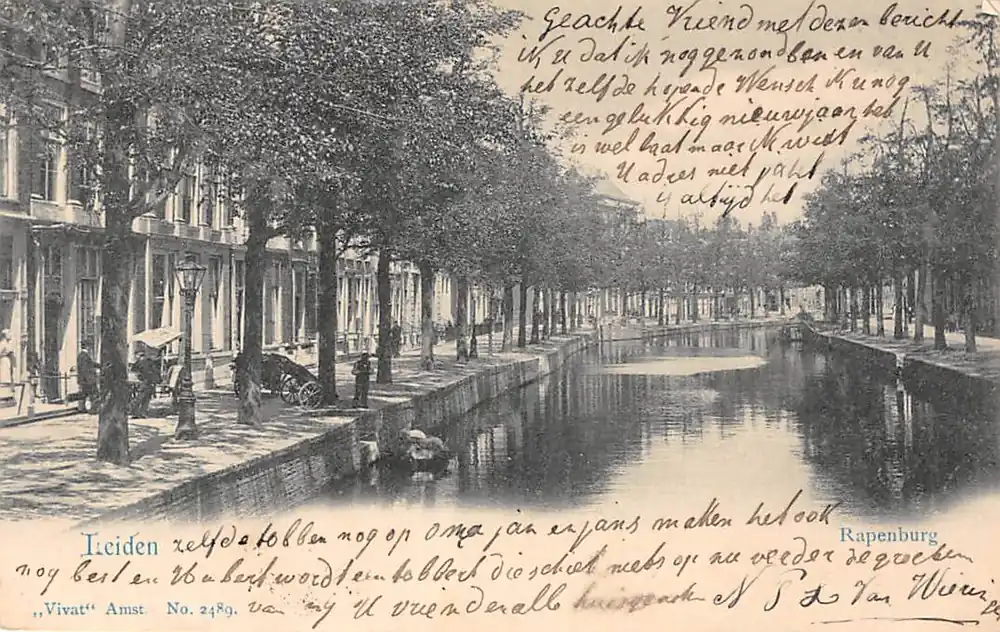 Geachte Vriend met dezen bericht
ik u dat ik nog gezond ben en van u
het zelfde hopende Wensch Ik u nog
een gelukkig nieuwjaar het
is wel laat maar Ik wist
U adres niet
is altijd het
Leiden zelfde tobben nog op oma jan en jans maken het ook Rapenburg
nog best en U bert wordt een tobbert die schiet niets op nu verder de groeten
„Vivat“ Amst. No. 2489. van mij U vriend en alle huisgenoten Van